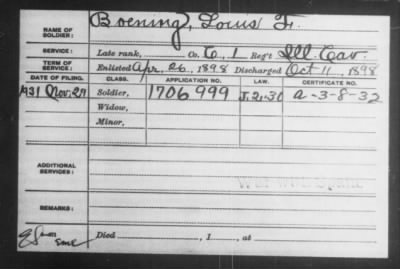 NAME OF SOLDIER: Boening, Louis F.
SERVICE: Late rank, Co. C, 1 Reg't Ill. Cav.
TERM OF SERVICE: Enlisted Apr. 26, 1898 Discharged Oct 11, 1898
DATE OF FILING. CLASS. APPLICATION NO. LAW. CERTIFICATE NO.
1931 Nov. 27 Soldier, 1706999 J-2-30 a-3-8-32
Widow,
Minor,
ADDITIONAL SERVICES:
REMARKS:
Died , 1 , at